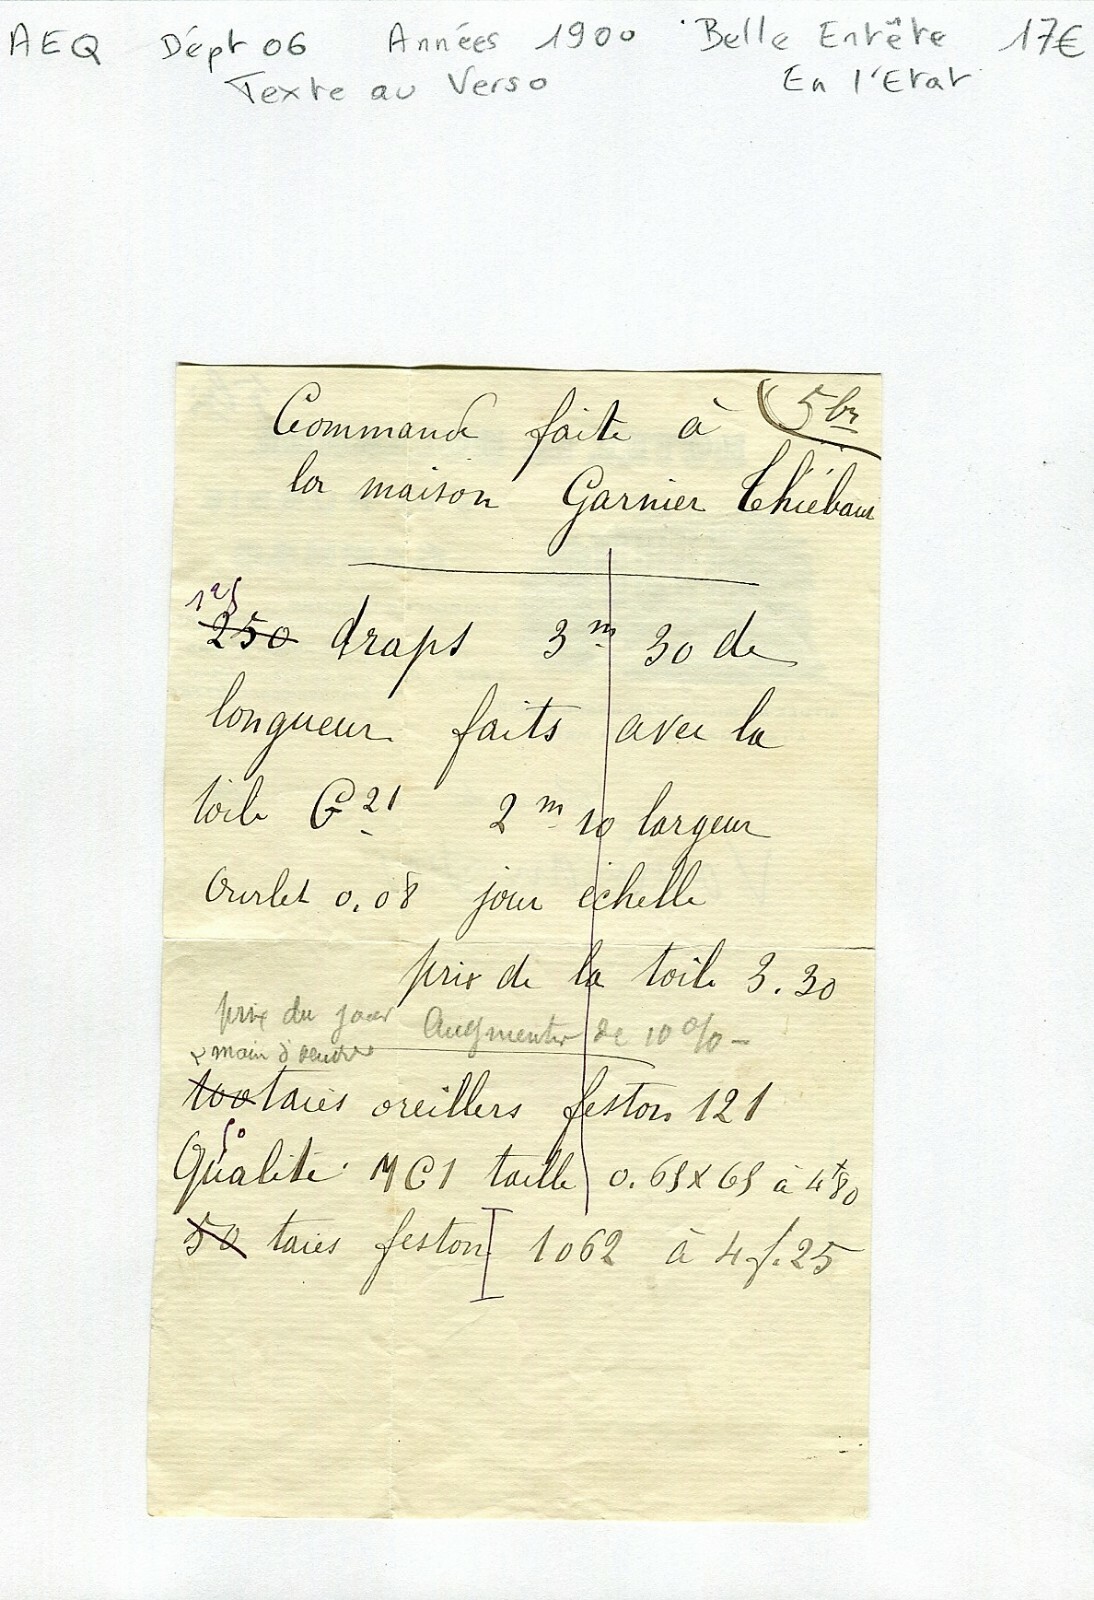 AEQ Dépt 06 Années 1900 Belle Entête 17€
Texte au Verso En l'Etat
Commande faite à 5br
la maison Garnier Thiébaut
125
250 draps 3m 30 de
longueur faits avec la
toile G21 2m 10 largeur
Ourlet 0.08 jour échelle
prix de la toile 3.30
prix du jour Augmenter de 10% -
main d'
100 taies oreillers feston 121
50
Qualité MC1 taille 0.65 x 65 à 4f80
50 taies feston 1062 à 4f.25